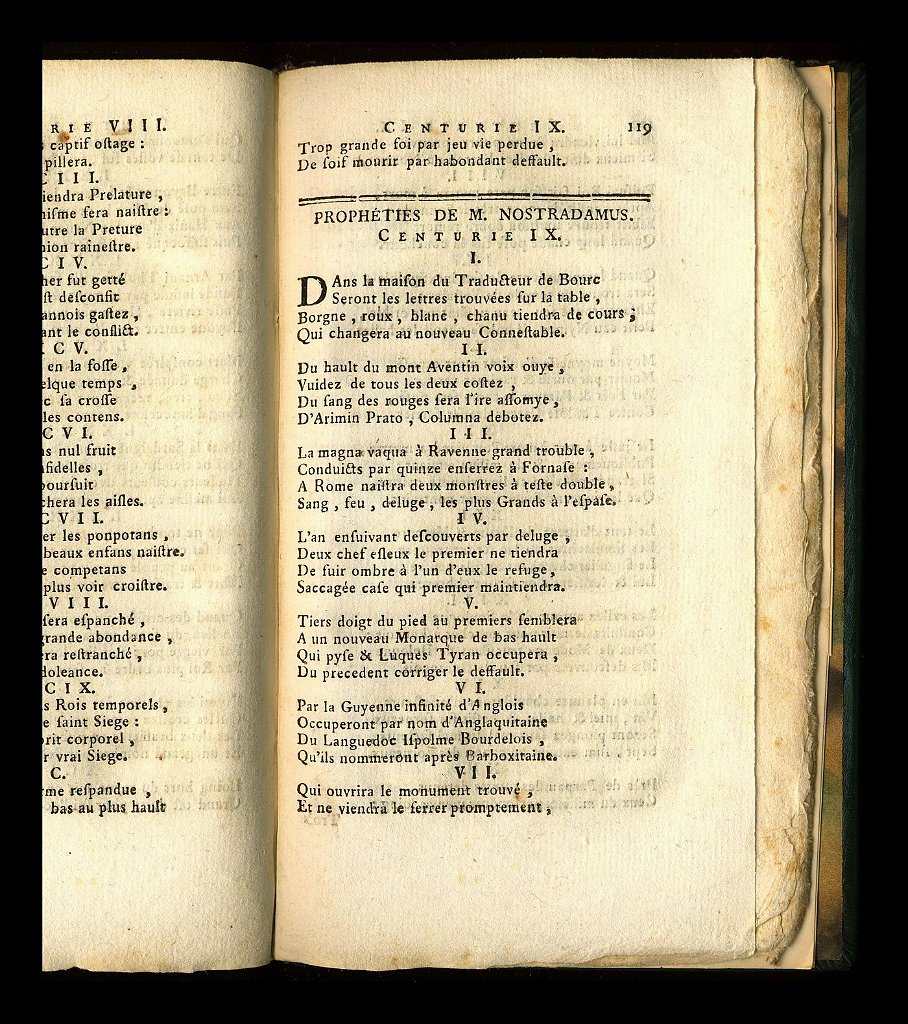 RIE VIII.
captif oſtage :
pillera.
CIII.
iendra Prelature ,
niſme ſera naiſtre :
utre la Preture
nion raineſtre.
CIV.
her fut getté
ſt deſconfit
annois gaſtez ,
ant le conflict.
CV.
en la foſſe ,
elque temps ,
c ſa croſſe
les contens.
CVI.
s nul fruit
fidelles ,
pourſuit
chera les aiſles.
CVII.
er les ponpotans ,
beaux enfans naiſtre.
e competans
plus voir croiſtre.
VIII.
ſera eſpanché ,
grande abondance ,
ra reſtranché ,
doleance.
CIX.
s Rois temporels ,
e ſaint Siege :
rit corporel ,
r vrai Siege.
C.
rme reſpandue ,
bas au plus hault
CENTURIE IX. 119
Trop grande foi par jeu vie perdue ,
De ſoif mourir par habondant deffault.
PROPHÉTIES DE M. NOSTRADAMUS.
CENTURIE IX.
I.
DAns la maiſon du Traducteur de Bourc
Seront les lettres trouvées ſur la table ,
Borgne , roux , blanc , chanu tiendra de cours ;
Qui changera au nouveau Conneſtable.
II.
Du hault du mont Aventin voix ouye ,
Vuidez de tous les deux coſtez ,
Du ſang des rouges ſera l'ire aſſomye ,
D'Arimin Prato , Columna debotez.
III.
La magna vaqua à Ravenne grand trouble ,
Conduicts par quinze enſerrez à Fornaſe :
A Rome naiſtra deux monſtres à teſte double ,
Sang , feu , deluge , les plus Grands à l'eſpaſe.
IV.
L'an enſuivant deſcouverts par deluge ,
Deux chef eſleux le premier ne tiendra
De fuir ombre à l'un d'eux le refuge ,
Saccagée caſe qui premier maintiendra.
V.
Tiers doigt du pied au premiers ſemblera
A un nouveau Monarque de bas hault
Qui pyſe & Luques Tyran occupera ,
Du precedent corriger le deffault.
VI.
Par la Guyenne infinité d'Anglois
Occuperont par nom d'Anglaquitaine
Du Languedoc Iſpolme Bourdelois ,
Qu'ils nommeront après Barboxitaine.
VII.
Qui ouvrira le monument trouvé ,
Et ne viendra le ferrer promptement ,